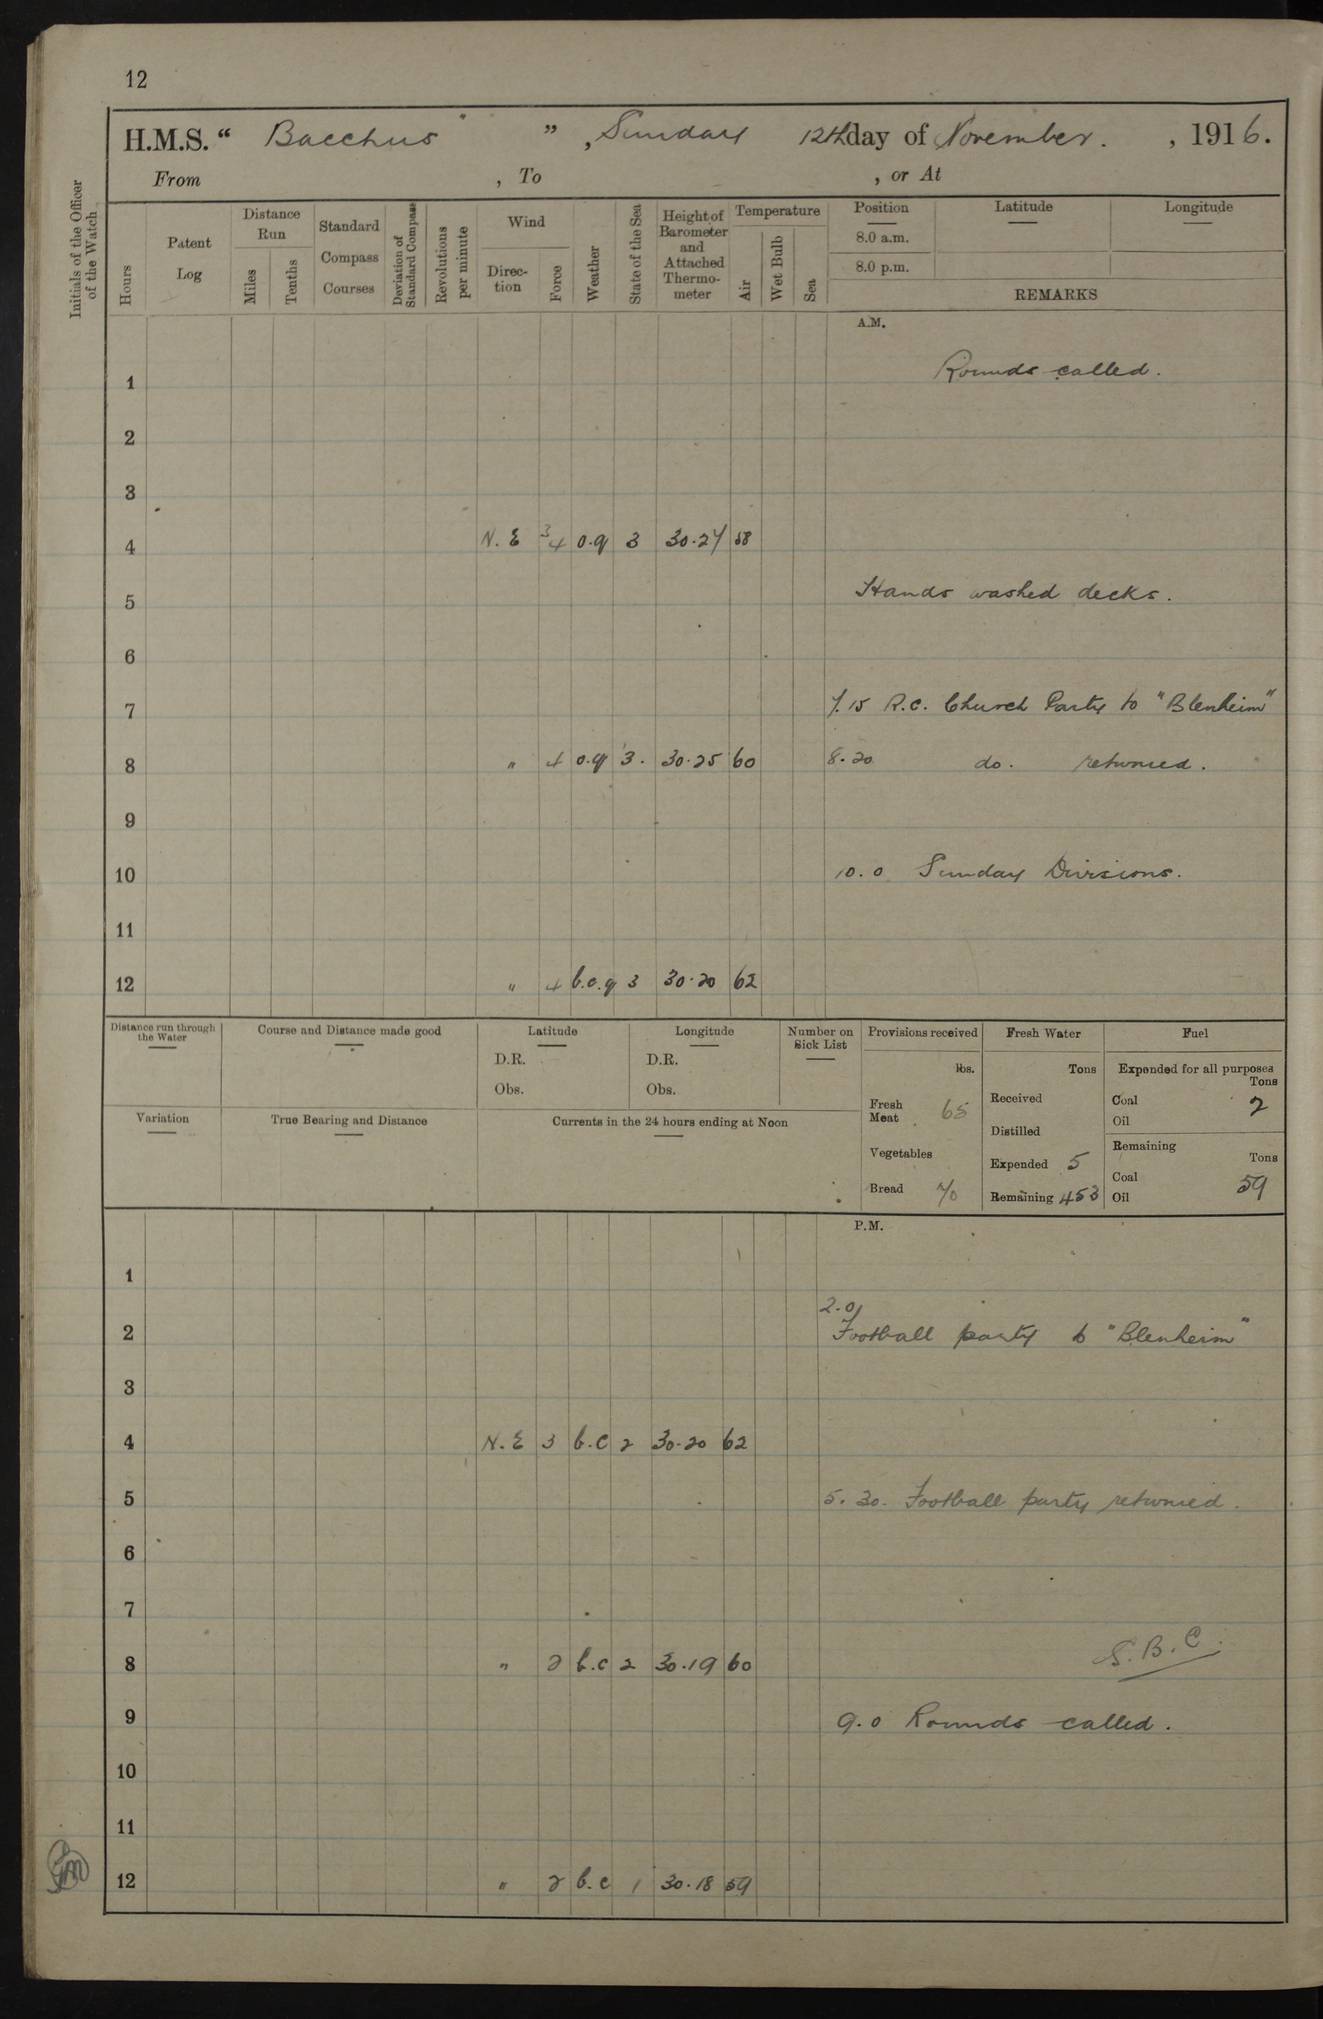 12
H.M.S. “ Bacchus ” , Sunday 12th day of November. , 1916.
From , To , or At
Initials of the Officer of the Watch
Hours
Patent Log
Distance Run
Miles
Tenths
Standard Compass Courses
Deviation of Standard Compass
Revolutions per minute
Wind
Direc-tion
Force
Weather
State of the Sea
Height of Barometer and Attached Thermo-meter
Temperature
Air
Wet Bulb
Sea
Position
8.0 a.m.
8.0 p.m.
Latitude
Longitude
REMARKS
A.M.
1 Rounds called.
2
3
4 N.E 3 4 o.q 3 30.27 58
5 Hands washed decks.
6
7 7.15 R.C. Church Party to "Blenheim"
8 " 4 o.q 3. 30.25 60 8.20 do. returned.
9
10 10.0 Sunday Divisions.
11
12 " 4 b.c.q 3 30.20 62
Distance run through the Water
Course and Distance made good
Latitude
D.R.
Obs.
Longitude
D.R.
Obs.
Number on Sick List
Provisions received
lbs.
Fresh Meat 65
Vegetables
Bread 70
Fresh Water
Tons
Received
Distilled
Expended 5
Remaining 453
Fuel
Expended for all purposes
Tons
Coal 2
Oil
Remaining
Tons
Coal 59
Oil
Variation
True Bearing and Distance
Currents in the 24 hours ending at Noon
P.M.
1
2.0
2 Football party to "Blenheim"
3
4 N.E 3 b.c 2 30.20 62
5 5.30. Football party returned.
6
7
S.B.C.
8 " 2 b.c 2 30.19 60
9 9.0 Rounds called.
10
11
12 " 2 b.c 1 30.18 59